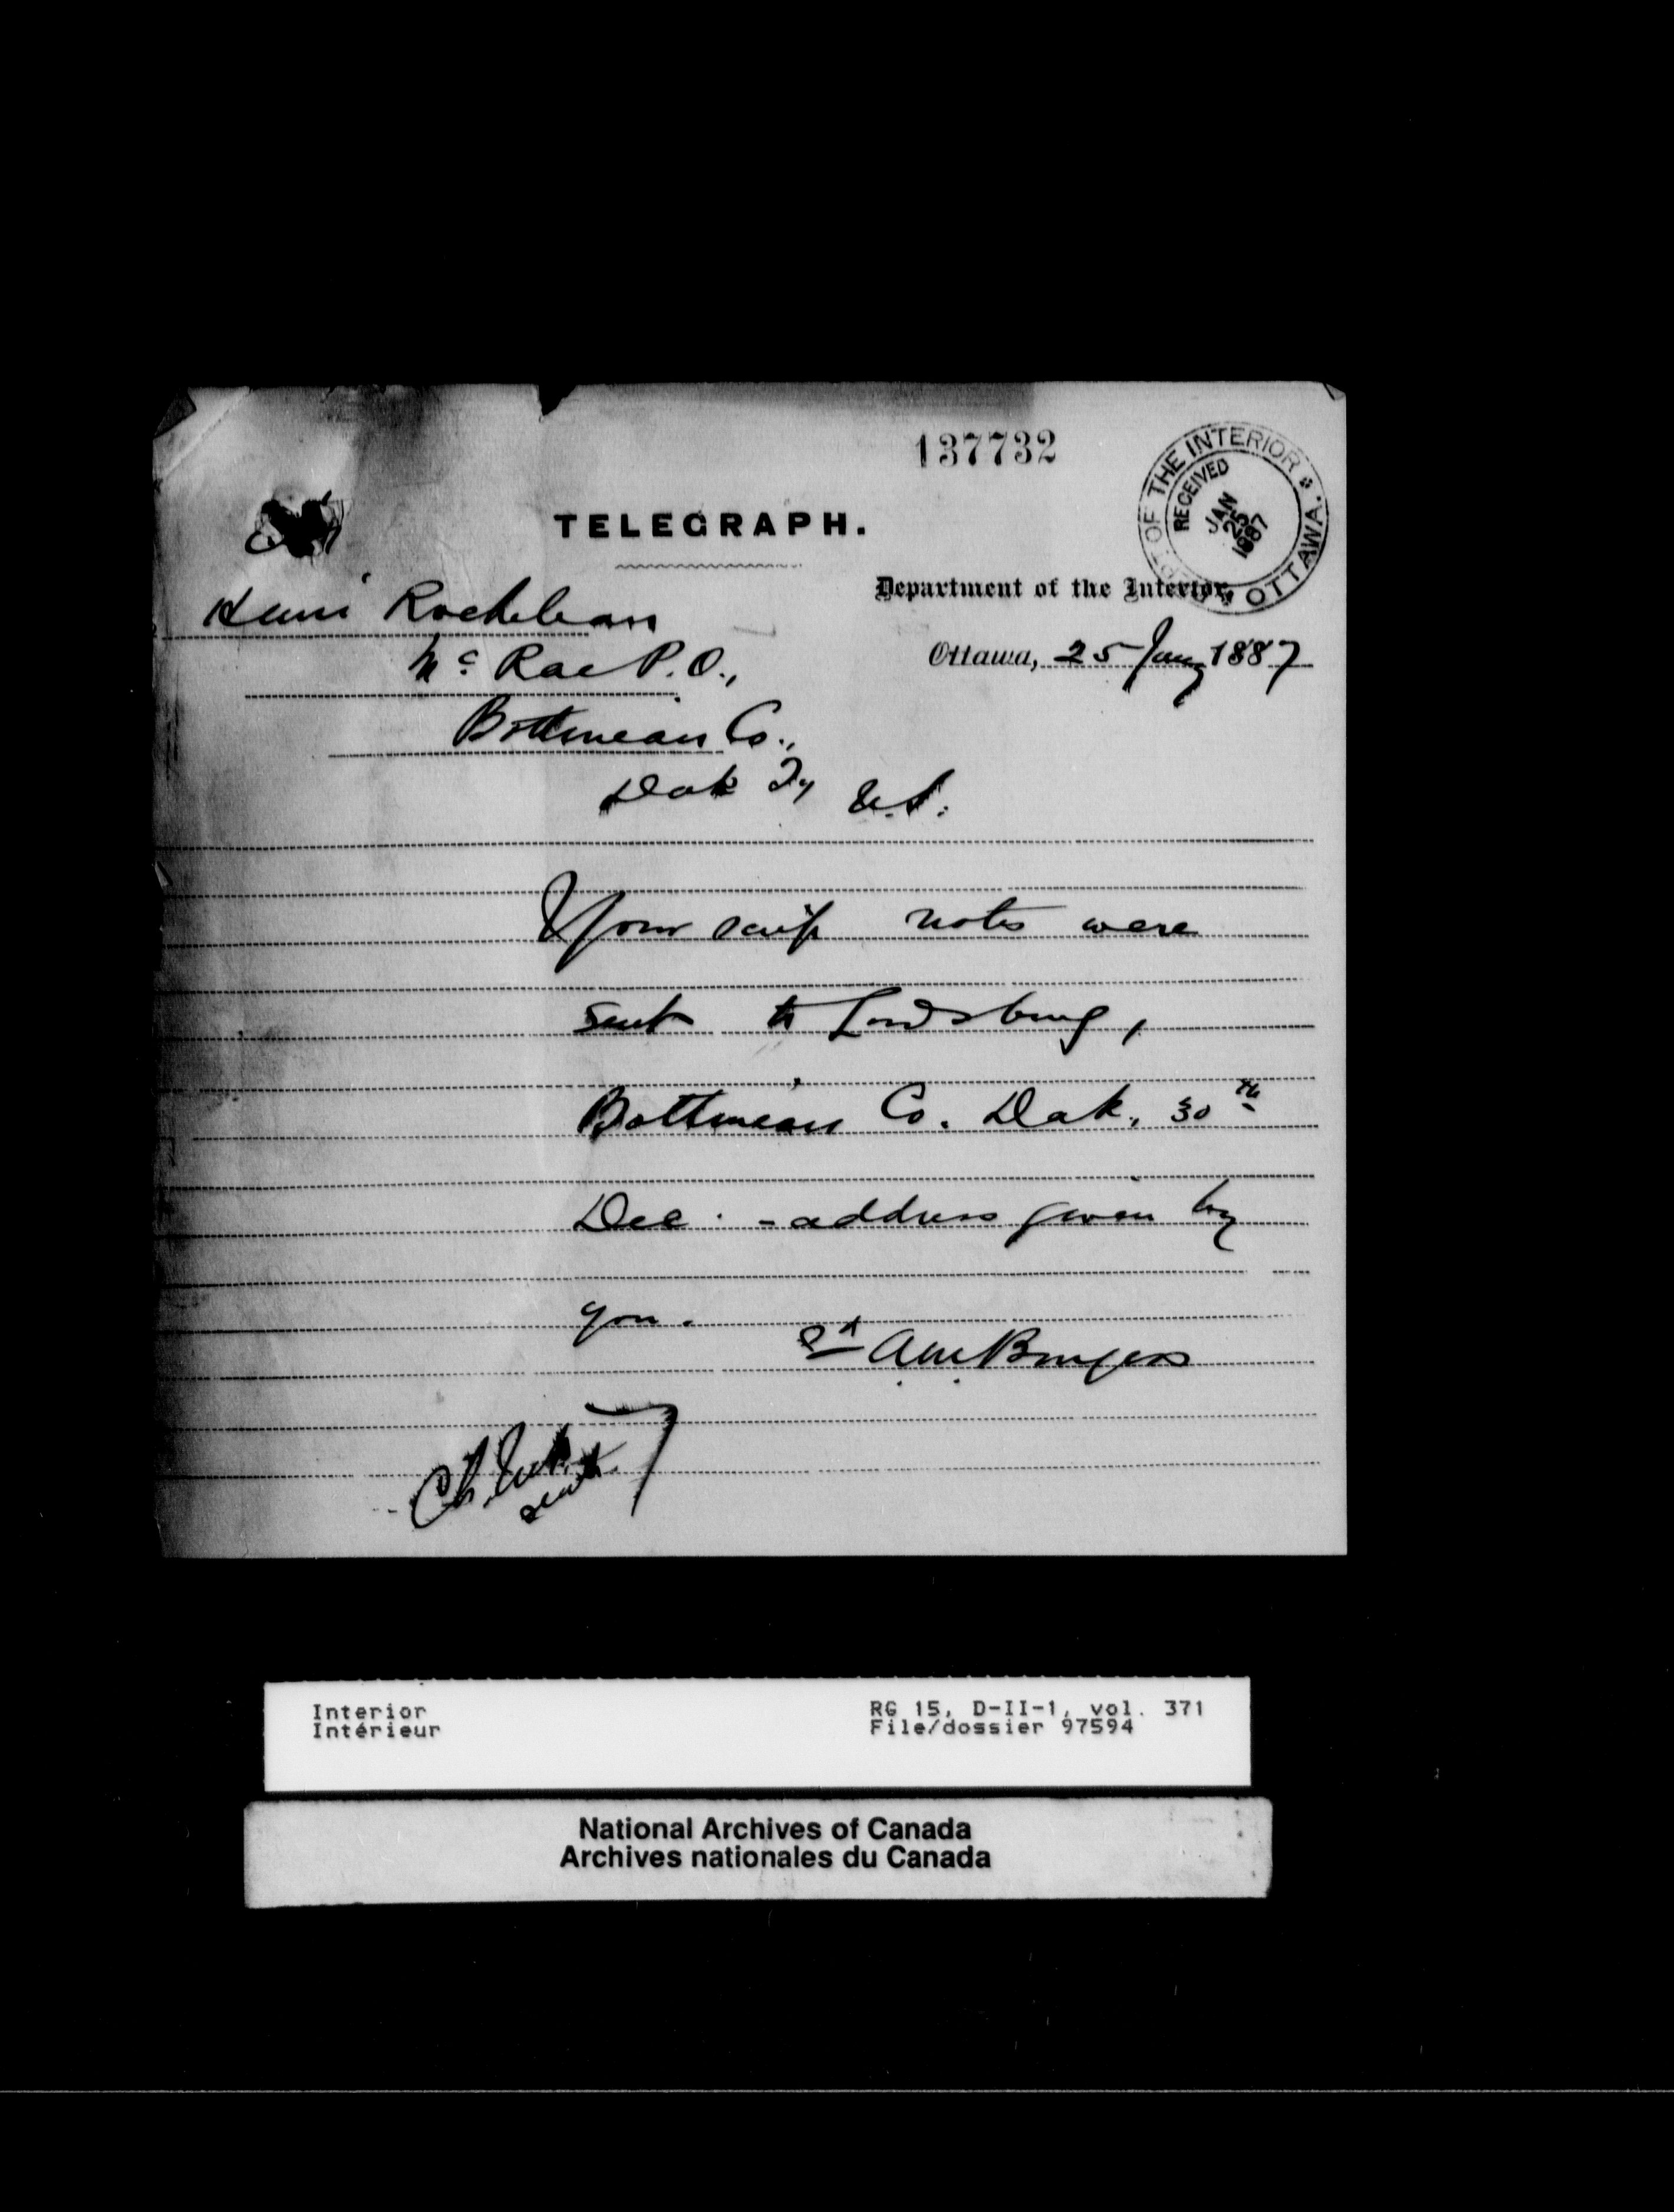 137732
DEPT OF THE INTERIOR * OTTAWA *
RECEIVED
JAN
25
1887
TELEGRAPH.
Department of the Interior,
Henri Rocheleau
Ottawa, 25 Jany 1887
Mc Rae P.O.,
Bottineau Co.,
Dak Ty U.S.
Your scrip notes were
sent to Lordsburg,
Bottineau Co. Dak., 30th
Dec. - address given by
you.
sd A M Burgess
Interior
Intérieur
RG 15, D-II-1, vol. 371
File/dossier 97594
National Archives of Canada
Archives nationales du Canada